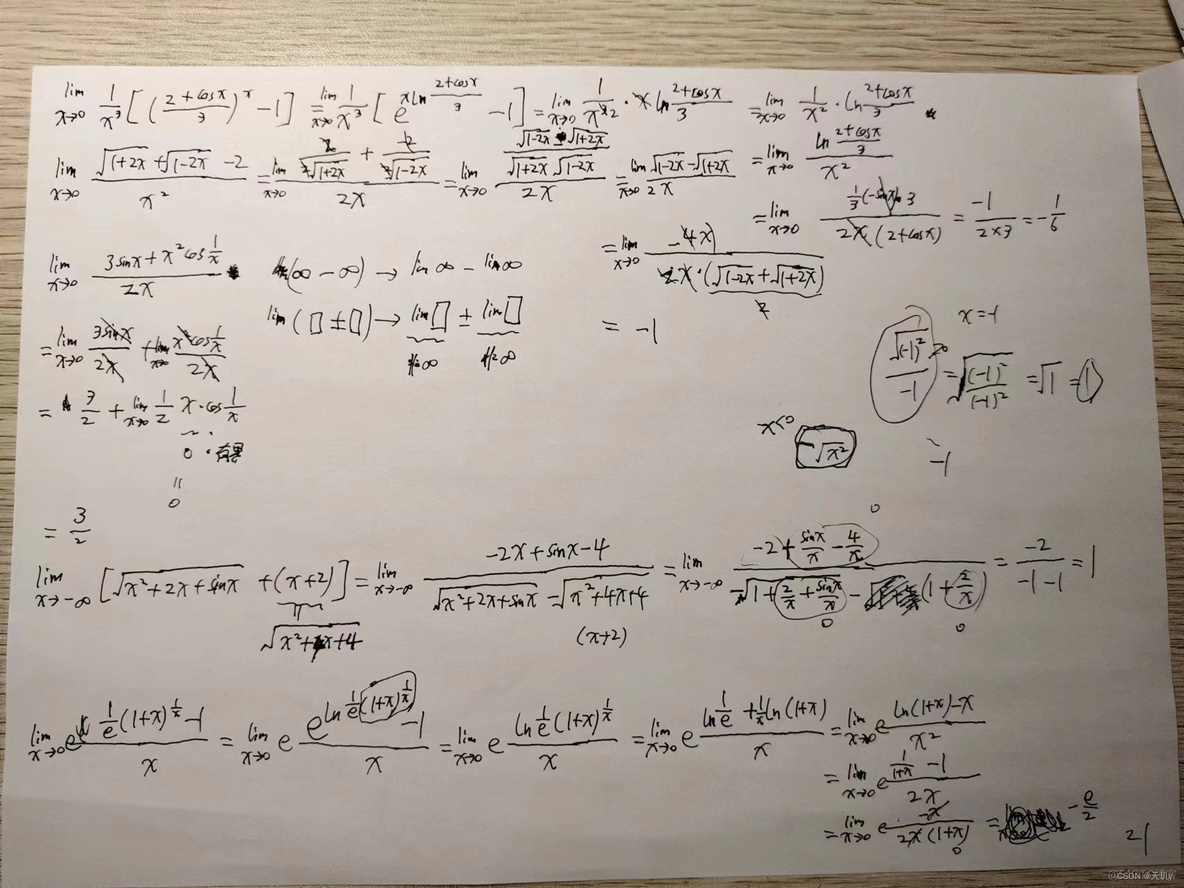 lim x→0 1/x³ [((2+cosx)/3)^x −1] = lim x→0 1/x³ [e^(x ln (2+cosx)/3) −1] = lim x→0 1/x² · ln (2+cosx)/3 = lim x→0 1/x² · ln (2+cosx)/3
= lim x→0 (ln (2+cosx)/3)/x²
= lim x→0 (1/3 (−sinx)·3)/(2x(2+cosx)) = −1/(2×3) = −1/6
lim x→0 (√(1+2x) + √(1−2x) −2)/x² = lim x→0 (2/(2√(1+2x)) + −2/(2√(1−2x)))/2x = lim x→0 ((√(1−2x) − √(1+2x))/(√(1+2x) √(1−2x)))/2x = lim x→0 (√(1−2x) − √(1+2x))/2x
= lim x→0 −4x/(2x·(√(1−2x) + √(1+2x)))
2
= −1
lim x→0 (3sinx + x² cos 1/x)/2x
(∞ − ∞) → lim ∞ − lim ∞
lim (□ ± □) → lim □ ± lim □
≠∞ ≠∞
= lim x→0 3sinx/2x + lim x→0 (x² cos 1/x)/2x
= 3/2 + lim x→0 1/2 x·cos 1/x
0 · 有界
=
0
= 3/2
x=−1
√(−1)²/−1 = √((−1)²/(−1)²) = √1 = 1
x<0
−√x²
−1
lim x→−∞ [√(x²+2x+sinx) + (x+2)] = lim x→−∞ (−2x+sinx−4)/(√(x²+2x+sinx) − √(x²+4x+4)) = lim x→−∞ (−2 + sinx/x − 4/x)/(−√(1+2/x+sinx/x) − (1+2/x)) = −2/(−1−1) = 1
√(x²+4x+4)
(x+2)
0
0 0
lim x→0 e (1/e (1+x)^(1/x) −1)/x = lim x→0 e (e^(ln 1/e (1+x)^(1/x)) −1)/x = lim x→0 e (ln 1/e (1+x)^(1/x))/x = lim x→0 e (ln 1/e + 1/x ln(1+x))/x = lim x→0 e (ln(1+x)−x)/x²
= lim x→0 e (1/(1+x) −1)/2x
= lim x→0 e −x/(2x(1+x)) = −e/2
0
21
@CSDN @天机y